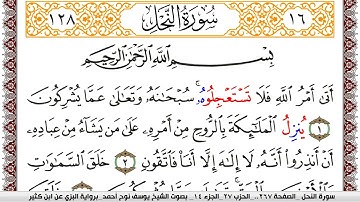 ١٢٨ سُورَةُ النَّحْلِ ١٦
بِسْمِ اللَّهِ الرَّحْمَٰنِ الرَّحِيمِ
أَتَىٰ أَمْرُ اللَّهِ فَلَا تَسْتَعْجِلُوهُۥ سُبْحَٰنَهُۥ وَتَعَٰلَىٰ عَمَّا يُشْرِكُونَ
١ يُنزِلُ الْمَلَٰٓئِكَةَ بِالرُّوحِ مِنْ أَمْرِهِۦ عَلَىٰ مَن يَشَآءُ مِنْ عِبَادِهِۦٓ
أَنْ أَنذِرُوٓا۟ أَنَّهُۥ لَآ إِلَٰهَ إِلَّآ أَنَا۠ فَاتَّقُونِ ٢ خَلَقَ السَّمَٰوَٰتِ
سورة النحل _ الصفحة ٢٦٧ _ الحزب ٢٧ _ الجزء ١٤ _ بصوت الشيخ يوسف نوح أحمد _ برواية البزي عن ابن كثير